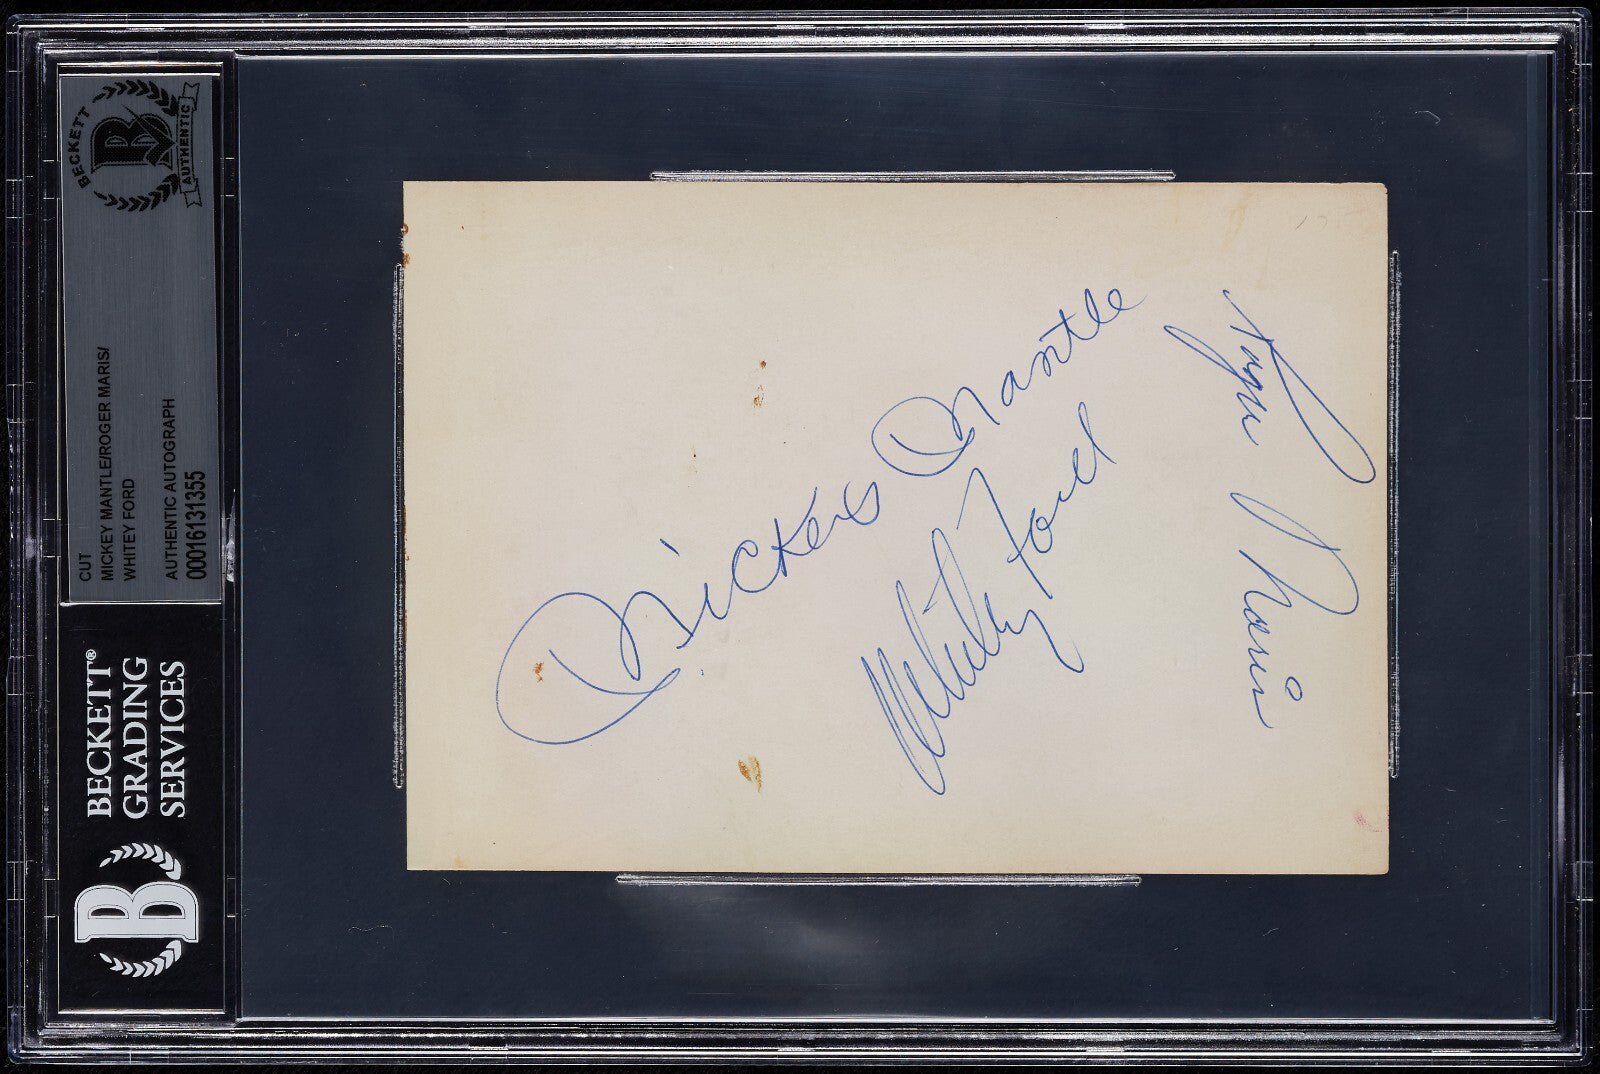 BECKETT
B
AUTHENTIC
CUT
MICKEY MANTLE/ROGER MARIS/
WHITEY FORD
AUTHENTIC AUTOGRAPH
000161313​55
BECKETT®
GRADING
SERVICES
B
Mickey Mantle
Whitey Ford
Roger Maris